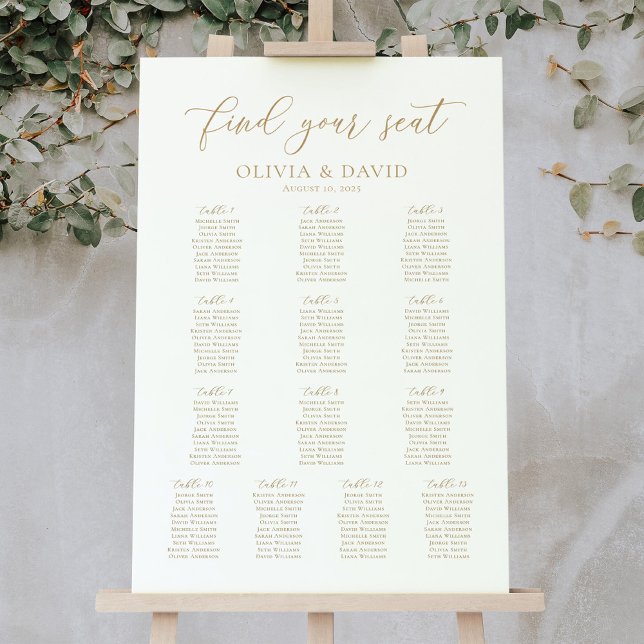 find your seat
OLIVIA & DAVID
AUGUST 10, 2025
table 1
MICHELLE SMITH
JEORGE SMITH
OLIVIA SMITH
KRISTEN ANDERSON
OLIVER ANDERSON
JACK ANDERSON
SARAH ANDERSON
LIANA WILLIAMS
SETH WILLIAMS
DAVID WILLIAMS
table 2
JACK ANDERSON
SARAH ANDERSON
LIANA WILLIAMS
SETH WILLIAMS
DAVID WILLIAMS
MICHELLE SMITH
JEORGE SMITH
OLIVIA SMITH
KRISTEN ANDERSON
OLIVER ANDERSON
table 3
JEORGE SMITH
OLIVIA SMITH
JACK ANDERSON
SARAH ANDERSON
LIANA WILLIAMS
SETH WILLIAMS
KRISTEN ANDERSON
OLIVER ANDERSON
DAVID WILLIAMS
MICHELLE SMITH
table 4
SARAH ANDERSON
LIANA WILLIAMS
SETH WILLIAMS
KRISTEN ANDERSON
OLIVER ANDERSON
DAVID WILLIAMS
MICHELLE SMITH
JEORGE SMITH
OLIVIA SMITH
JACK ANDERSON
table 5
LIANA WILLIAMS
SETH WILLIAMS
DAVID WILLIAMS
MICHELLE SMITH
JEORGE SMITH
OLIVIA SMITH
KRISTEN ANDERSON
OLIVER ANDERSON
JACK ANDERSON
SARAH ANDERSON
table 6
DAVID WILLIAMS
MICHELLE SMITH
JEORGE SMITH
OLIVIA SMITH
JACK ANDERSON
SARAH ANDERSON
LIANA WILLIAMS
SETH WILLIAMS
KRISTEN ANDERSON
OLIVER ANDERSON
table 7
DAVID WILLIAMS
MICHELLE SMITH
JEORGE SMITH
OLIVIA SMITH
JACK ANDERSON
SARAH ANDERSON
LIANA WILLIAMS
SETH WILLIAMS
KRISTEN ANDERSON
OLIVER ANDERSON
table 8
MICHELLE SMITH
JEORGE SMITH
OLIVIA SMITH
KRISTEN ANDERSON
OLIVER ANDERSON
JACK ANDERSON
SARAH ANDERSON
LIANA WILLIAMS
SETH WILLIAMS
DAVID WILLIAMS
table 9
SETH WILLIAMS
KRISTEN ANDERSON
OLIVER ANDERSON
DAVID WILLIAMS
MICHELLE SMITH
JEORGE SMITH
OLIVIA SMITH
JACK ANDERSON
SARAH ANDERSON
LIANA WILLIAMS
table 10
JEORGE SMITH
OLIVIA SMITH
JACK ANDERSON
SARAH ANDERSON
DAVID WILLIAMS
MICHELLE SMITH
LIANA WILLIAMS
SETH WILLIAMS
KRISTEN ANDERSON
OLIVER ANDERSON
table 11
KRISTEN ANDERSON
OLIVER ANDERSON
MICHELLE SMITH
JEORGE SMITH
OLIVIA SMITH
JACK ANDERSON
SARAH ANDERSON
LIANA WILLIAMS
SETH WILLIAMS
DAVID WILLIAMS
table 12
JEORGE SMITH
OLIVIA SMITH
DAVID WILLIAMS
MICHELLE SMITH
KRISTEN ANDERSON
OLIVER ANDERSON
JACK ANDERSON
SARAH ANDERSON
LIANA WILLIAMS
SETH WILLIAMS
table 13
SARAH ANDERSON
LIANA WILLIAMS
KRISTEN ANDERSON
OLIVER ANDERSON
JACK ANDERSON
DAVID WILLIAMS
MICHELLE SMITH
JEORGE SMITH
OLIVIA SMITH
SETH WILLIAMS